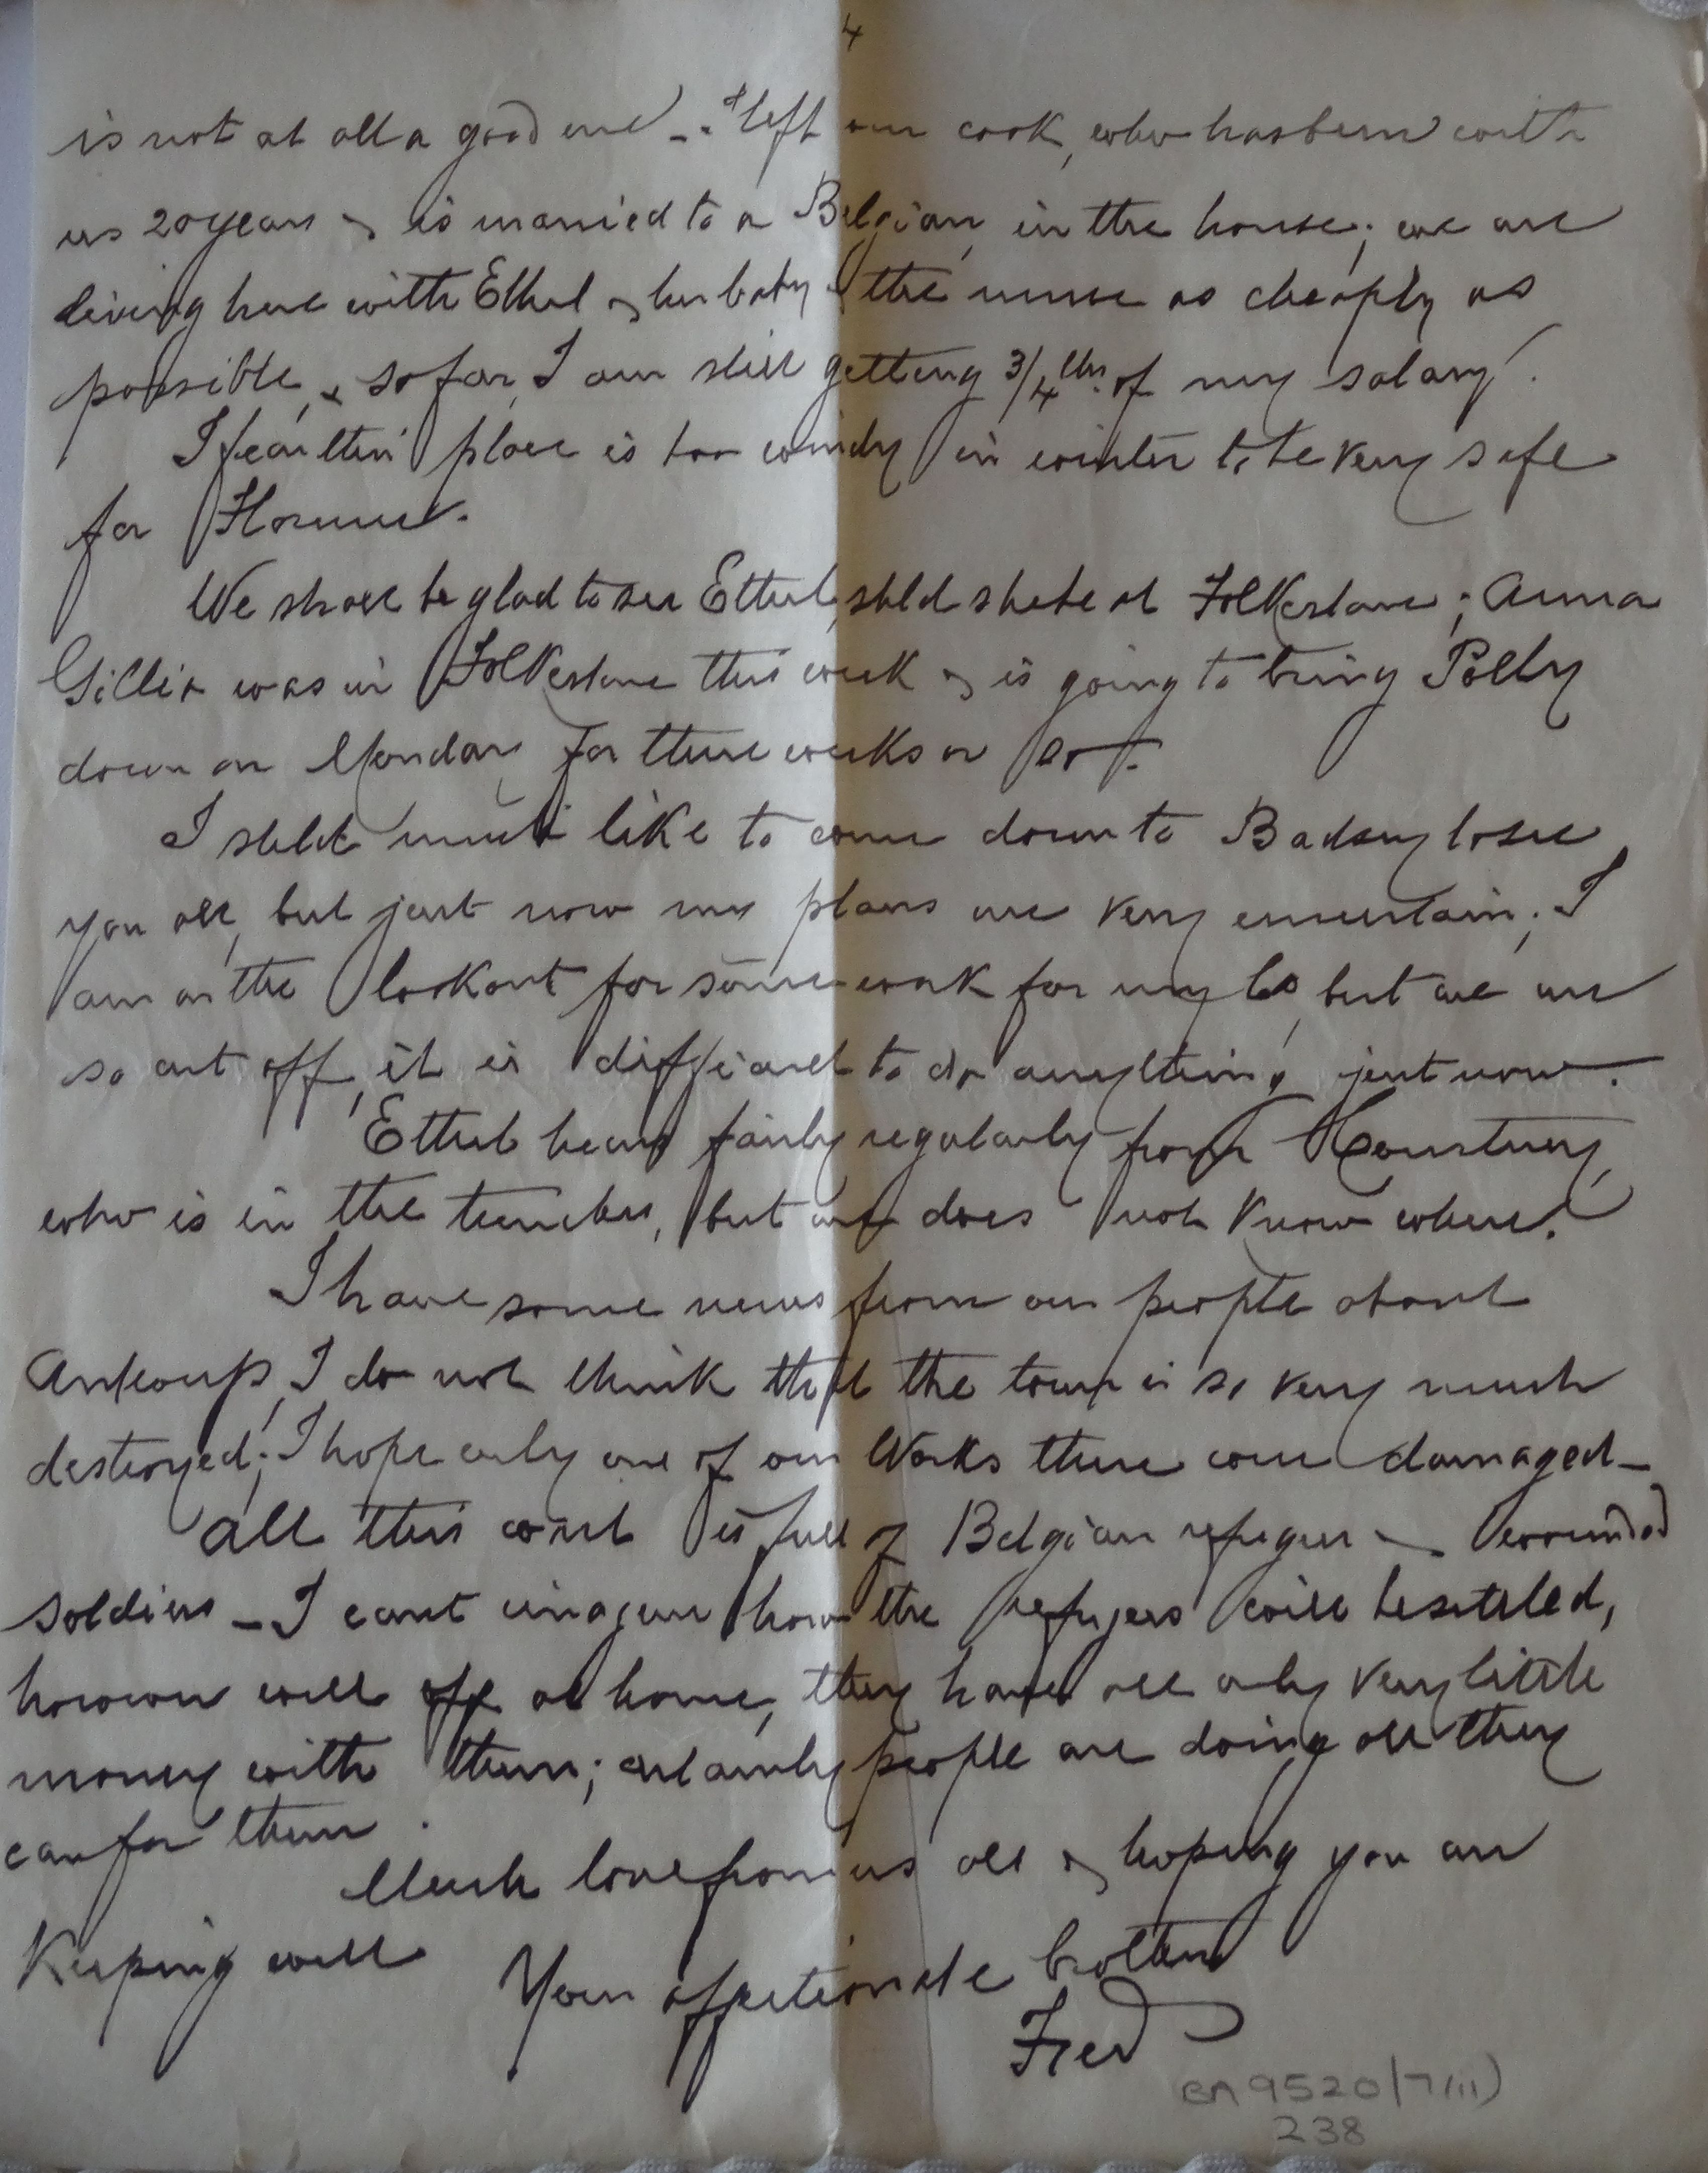 4
is not at all a good one - I left our cook, who has been with
us 20 years & is married to a Belgian, in the house; we are
living here with Ethel & her baby & the nurse as cheaply as
possible, & so far, I am still getting 3/4ths of my salary.
I fear this place is too windy in winter to be very safe
for Florence.
We shall be glad to see Ethel, shld she be at Folkestone; Anna
was in Folkestone this week & is going to bring Polly
down on Monday for three weeks or so.
I shld much like to come down to Badsey to see
you all, but just now my plans are very uncertain; I
am on the lookout for some work for my Co, but we are
so cut off, it is difficult to do anything just now.
Ethel hears fairly regularly from
who is in the trenches, but one does not know where.
I have some news from our people about
Antwerp, I do not think that the town is so very much
destroyed; I hope only one of our Works there were damaged -
All this coast is full of Belgian refugees & wounded
soldiers - I cant imagine how the refugees will be settled,
however well off at home, they have all only very little
money with them; certainly people are doing all they
can for them.
Much love from us all & hoping you are
Keeping well
Your affectionate brother
Fred
EA 9520/7(ii)
238